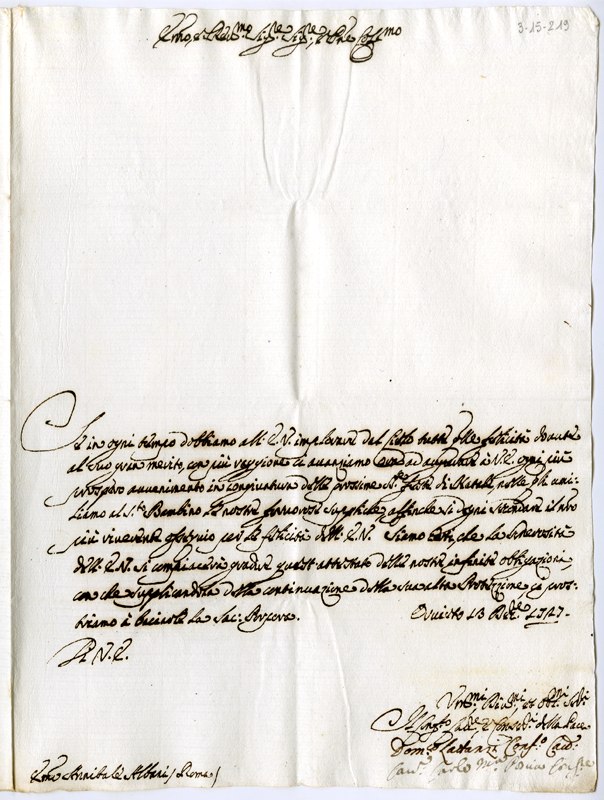 3-15-219
Emo, e Rmo Sigre Sigre, e Pne Colmo
Se in ogni tempo dobbiamo all'E.V. implorare dal Cielo tutte le felicità dovute
al suo gran merito, con più raggione ci avanziamo ad augurare à V.E. ogni più
prospero avvenimento in congiuntura delle prossime Ste feste di Natale, nelle quali umi-
liamo al Sto Bambino le nostre fervorose suppliche affinche si degni secondare il nro
più vivo ossequio per le felicità dell'E.V. Siamo certi, che la Generosità
dell'E.V. si compiacerà gradire quest'attestato delle nostre infinite obligazioni
con che supplicandola della continuazione della sua alta Protezzione ci pros-
triamo à baciarle la Sac: Porpora. Orvieto 13 Xbre 1727.
Di V.E.
Umi Divmi et Obmi Sri
della Pace
Domco Lattanzi Confo
Cavre Carlo Ma
Emo Annibale Albani / Roma /